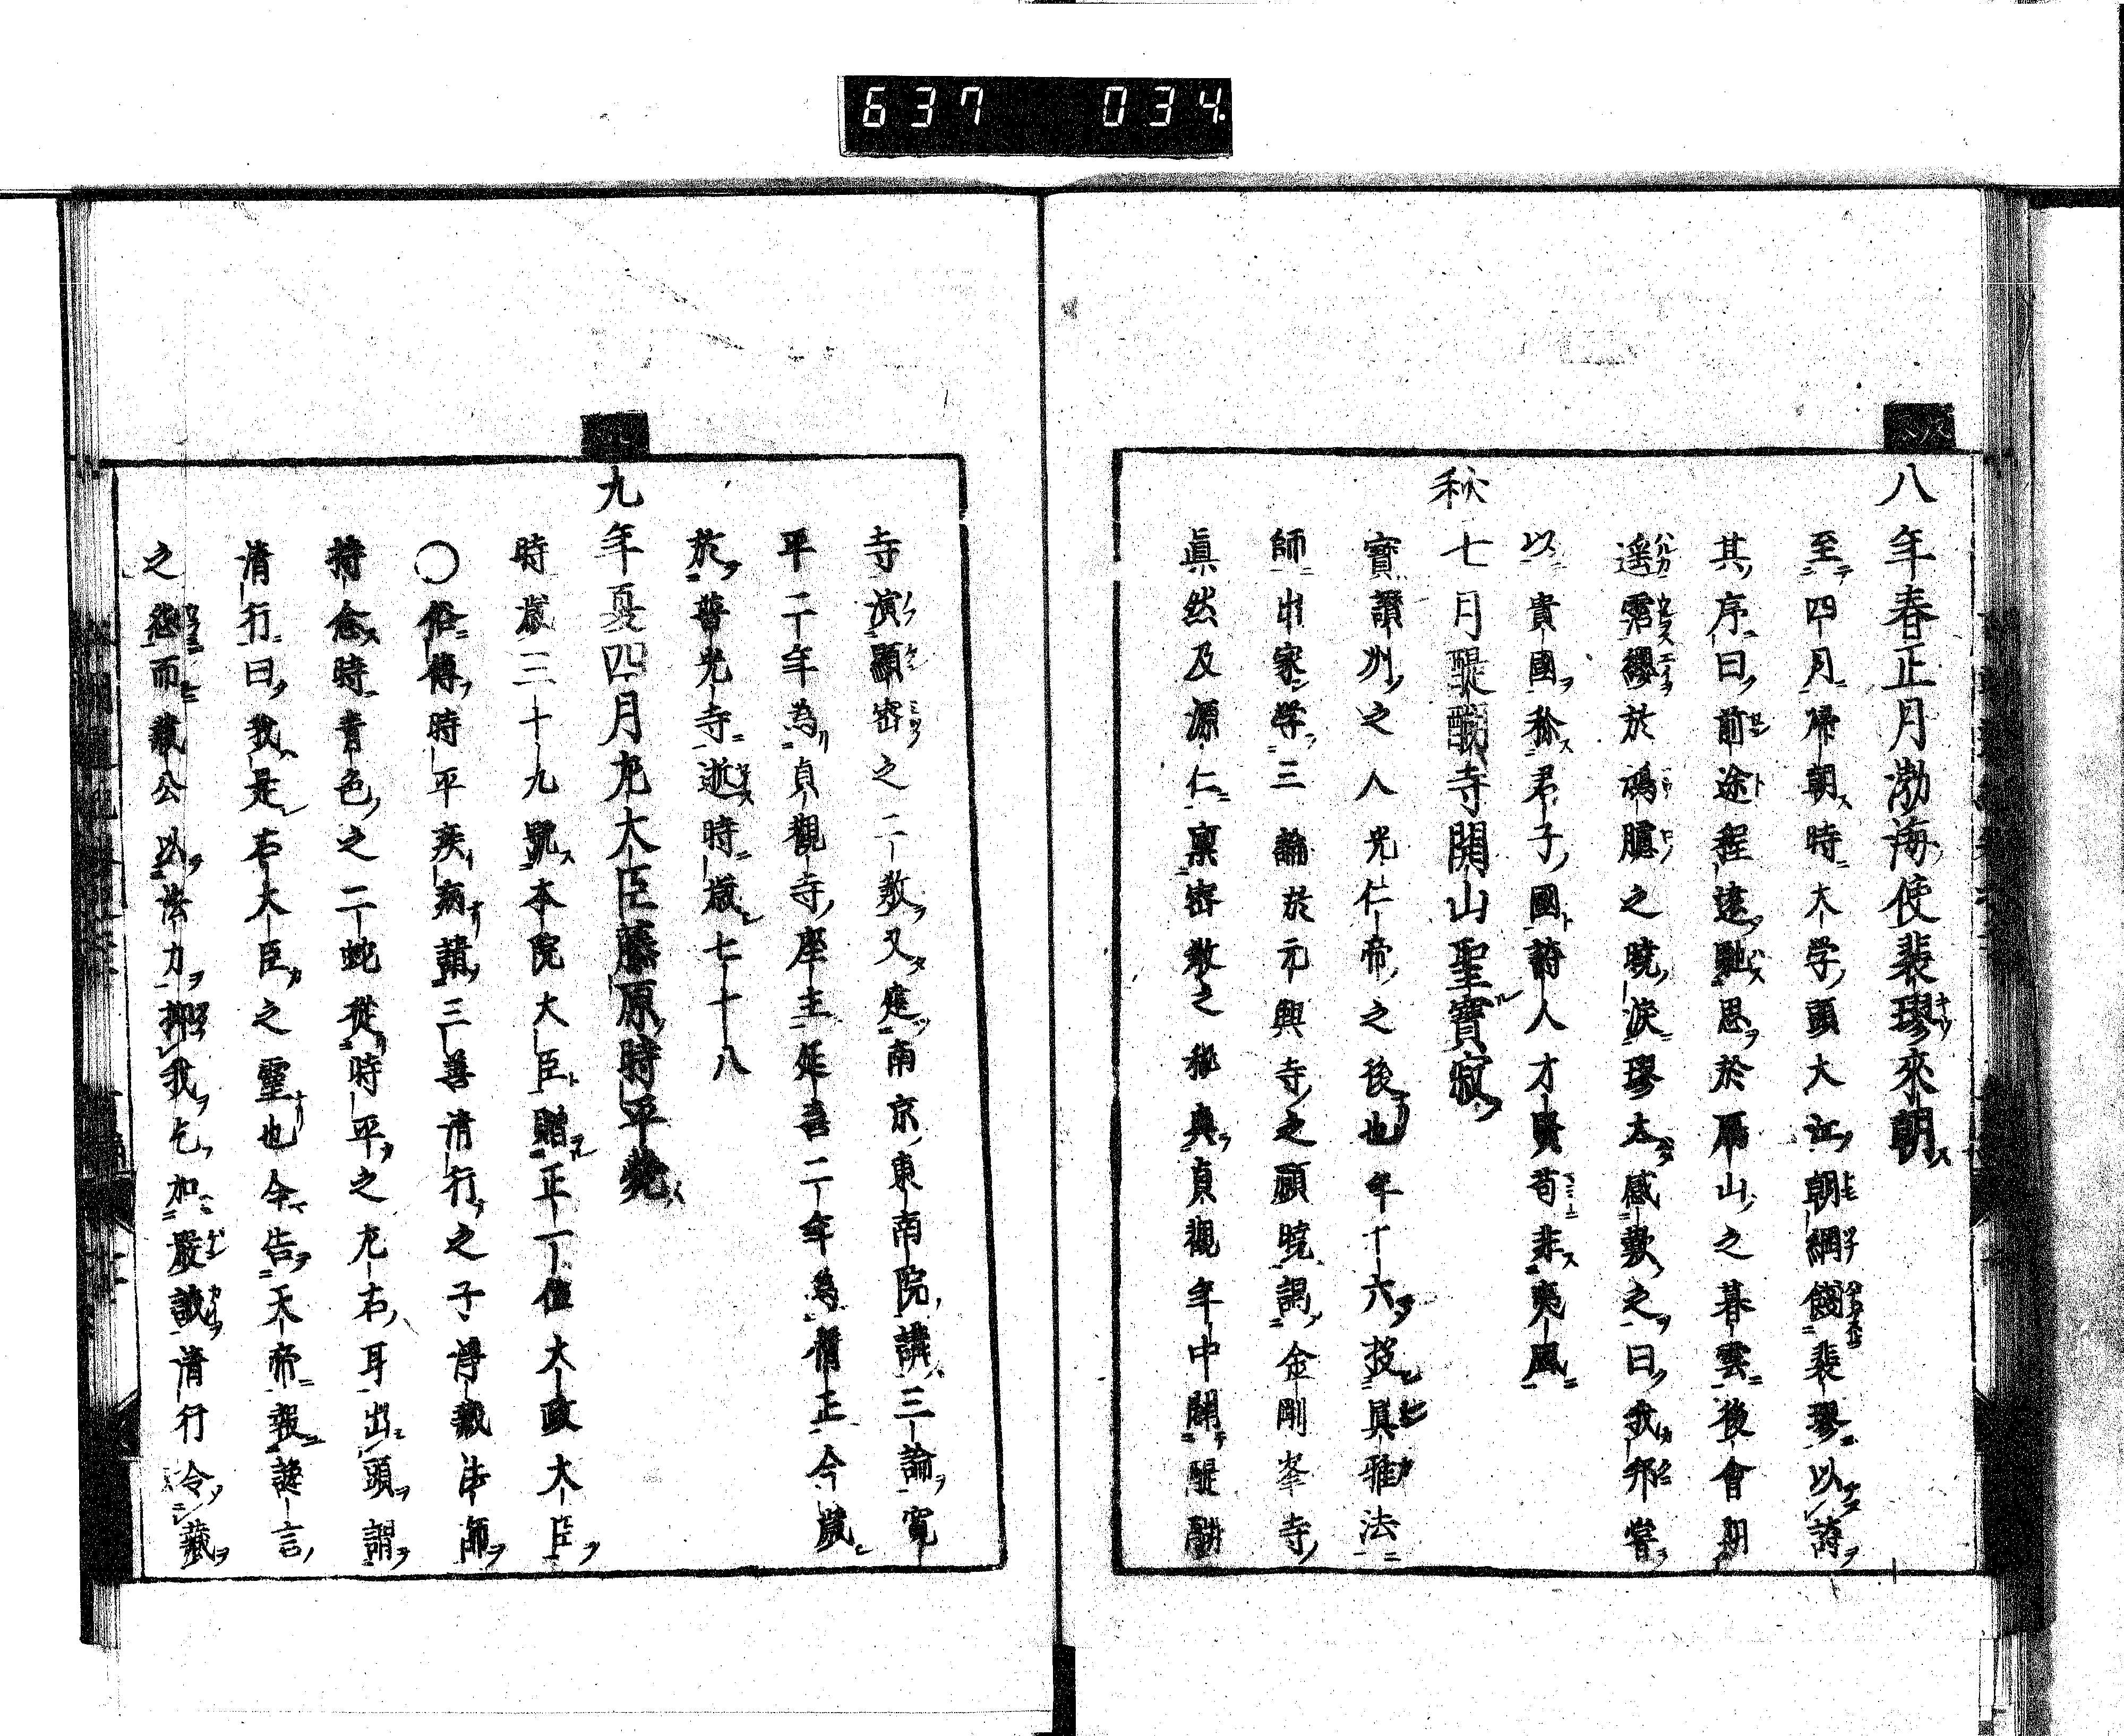 637 034
八年春正月渤海使裴璆來朝
至四月帰朝時大学頭大江朝綱餞裴璆以詩
其序曰前途程遠馳思於雁山之暮雲後會期
遥霑纓於鴻臚之曉淚璆太感歎之曰我邦嘗
以貴國称君子國詩人才賢苟非夷風
秋七月醍醐寺開山聖寶寂
寶讃州之人光仁帝之後也年十六投真雅法
師出家学三論於元興寺之願曉謁金剛峯寺
眞然及源仁稟密敎之秘奥貞觀年中開醍醐
寺演顯密之二敎又建南京東南院講三論寛
平二年為貞觀寺座主延喜二年為僧正今歳
於普光寺逝時歳七十八
九年夏四月左大臣藤原時平薨
時歳三十九號本院大臣贈正一位太政大臣
〇俗傳時平疾病請三善清行之子淨藏法師
持念時青色之二蛇從時平之左右耳出頭謂
清行曰我是右大臣之靈也今告天帝報讒言
之怨而藏公以法力抑我乞加嚴誡清行令藏